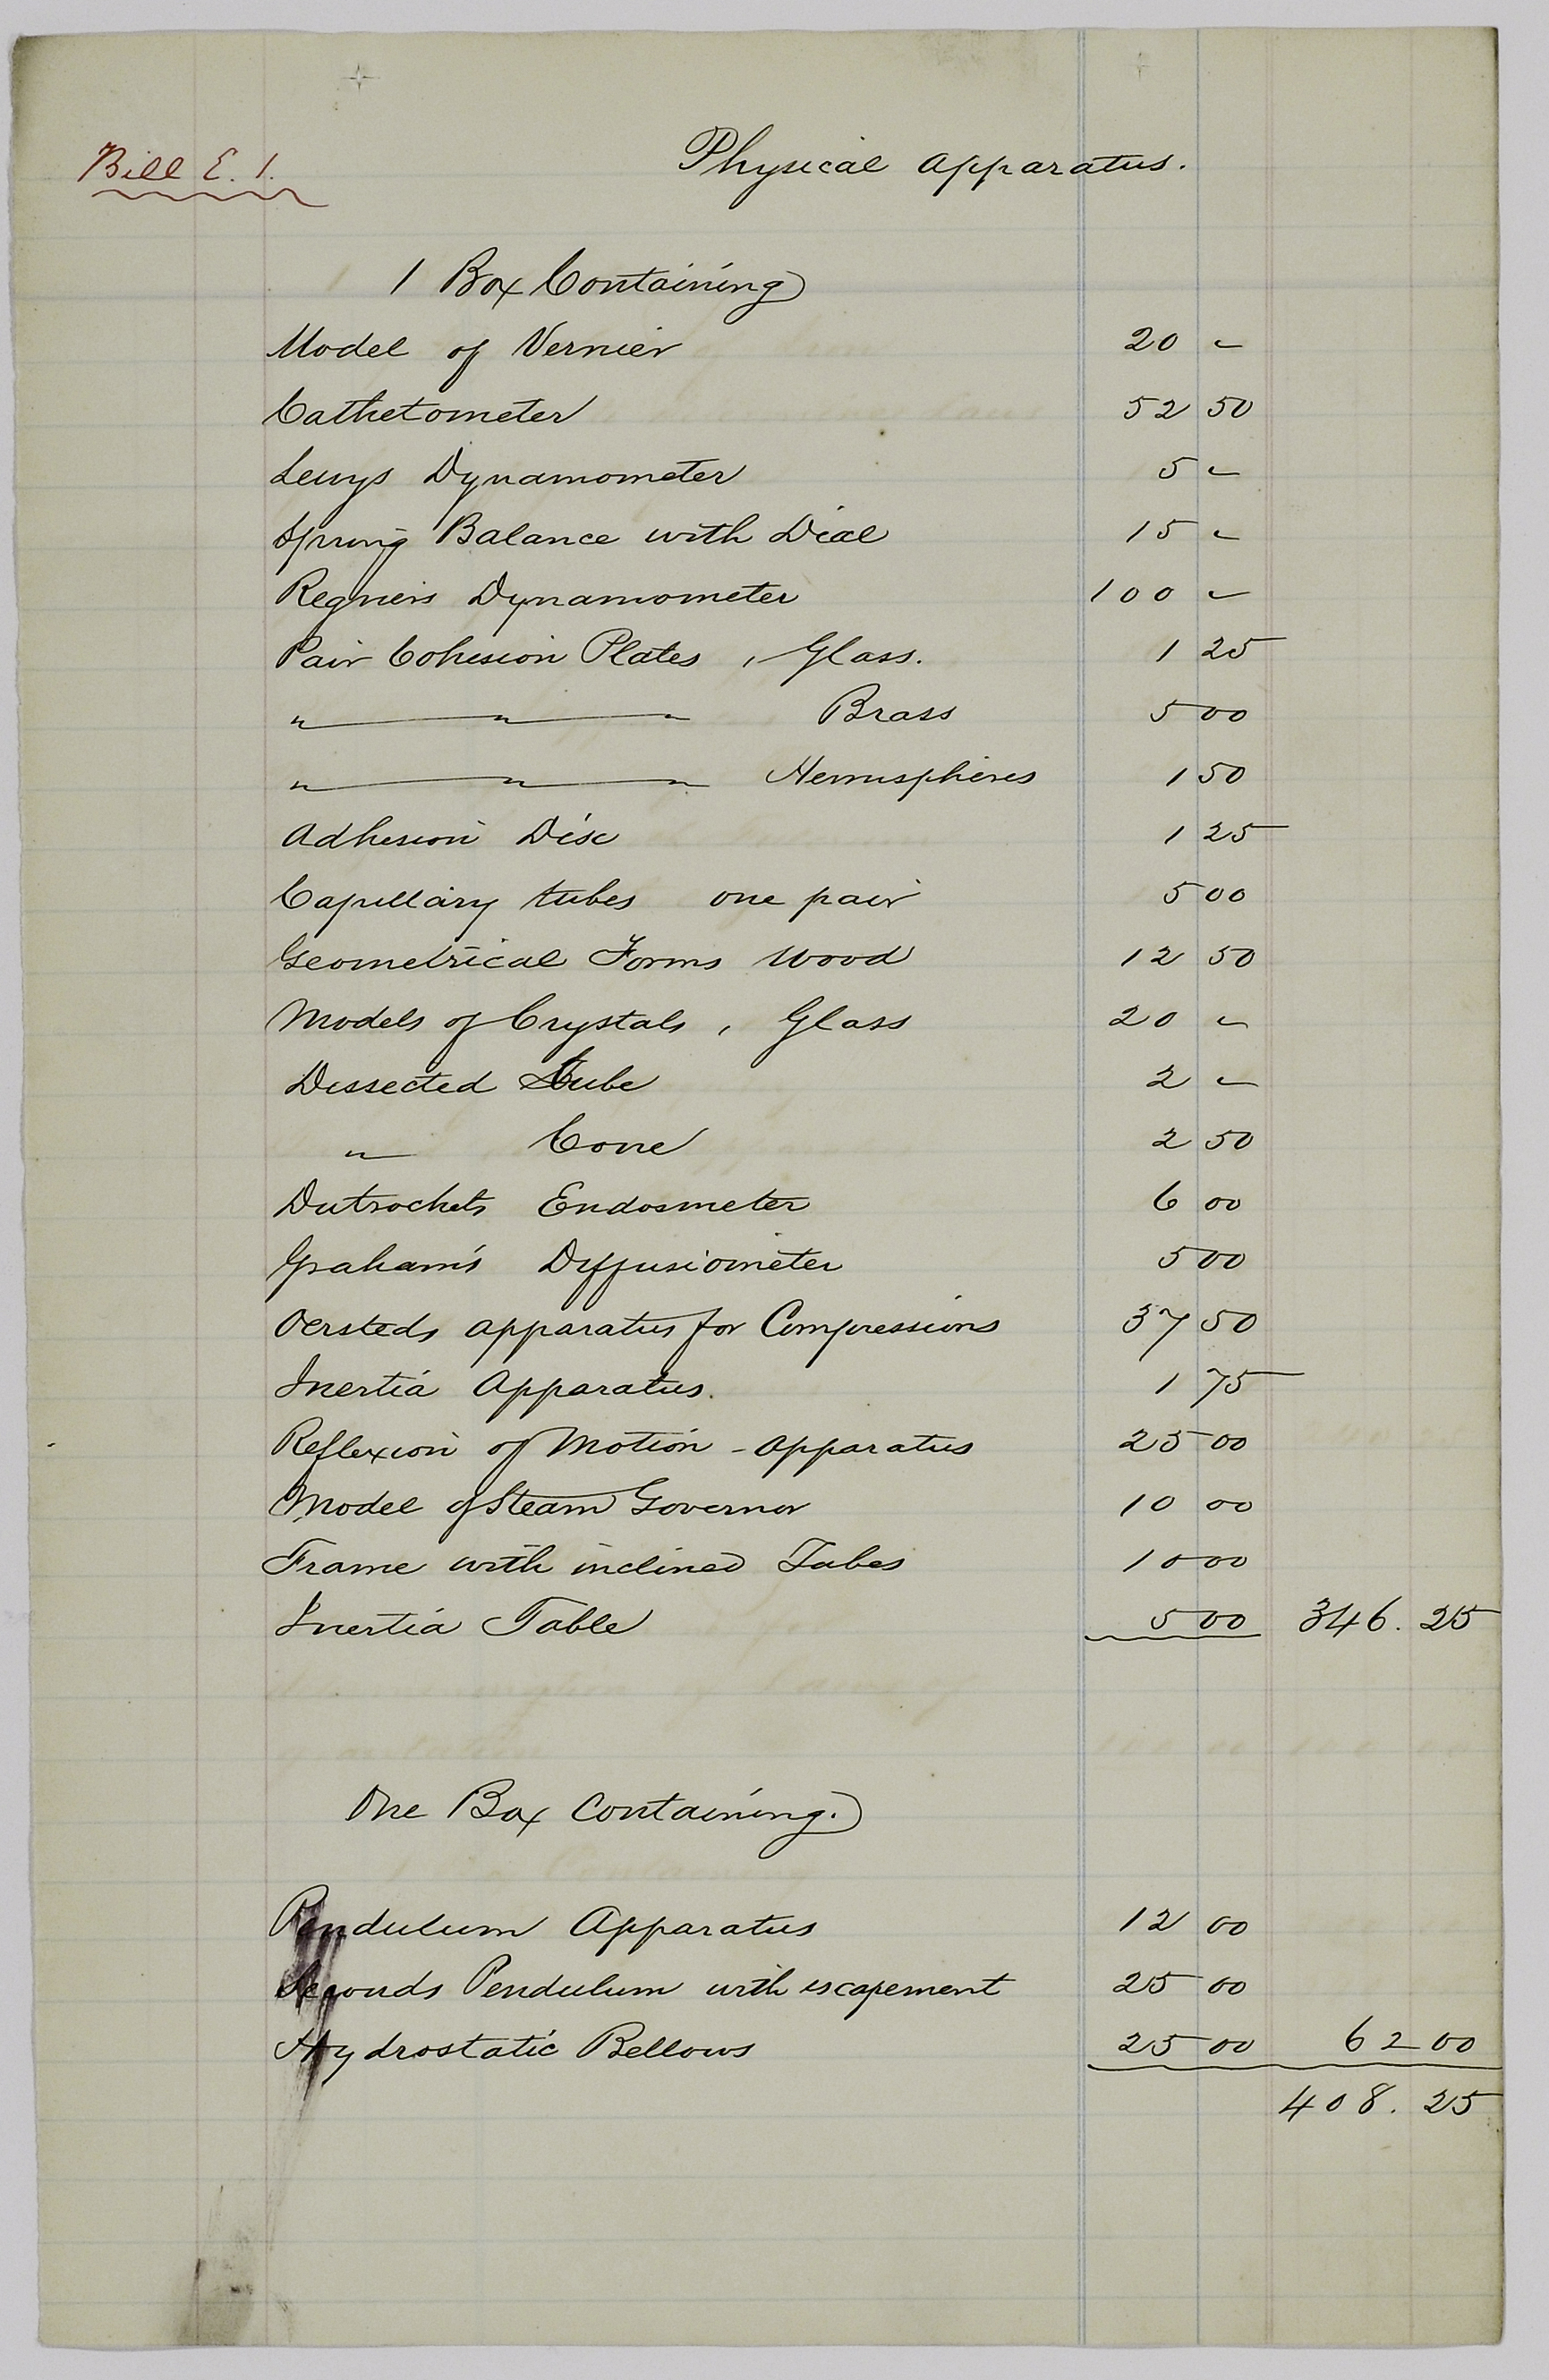 Bill E. 1.
Physical Apparatus.
1 Box Containing
Model of Vernier 20 -
Cathetometer 52 50
Leuys Dynamometer 5 -
Spring Balance with Dial 15 -
Regniers Dynamometer 100 -
Pair Cohesion Plates, Glass. 1 25
" " " Brass 5 00
" " " Hemispheres 1 50
Adhesion Disc 1 25
Capillary tubes one pair 5 00
Geometrical Forms Wood 12 50
Models of Crystals, Glass 20 -
Dissected Cube 2 -
" Cone 2 50
Dutrochets Endosmeter 6 00
Graham's Diffusiometer 5 00
Oersteds apparatus for Compressions 37 50
Inertia Apparatus. 1 75
Reflexion of Motion - apparatus 25 00
Model of Steam Governor 10 00
Frame with inclined Tubes 10 00
Inertia Table 5 00 346. 25
One Box Containing.
Pendulum Apparatus 12 00
Seconds Pendulum with escapement 25 00
Hydrostatic Bellows 25 00 62 00
408. 25